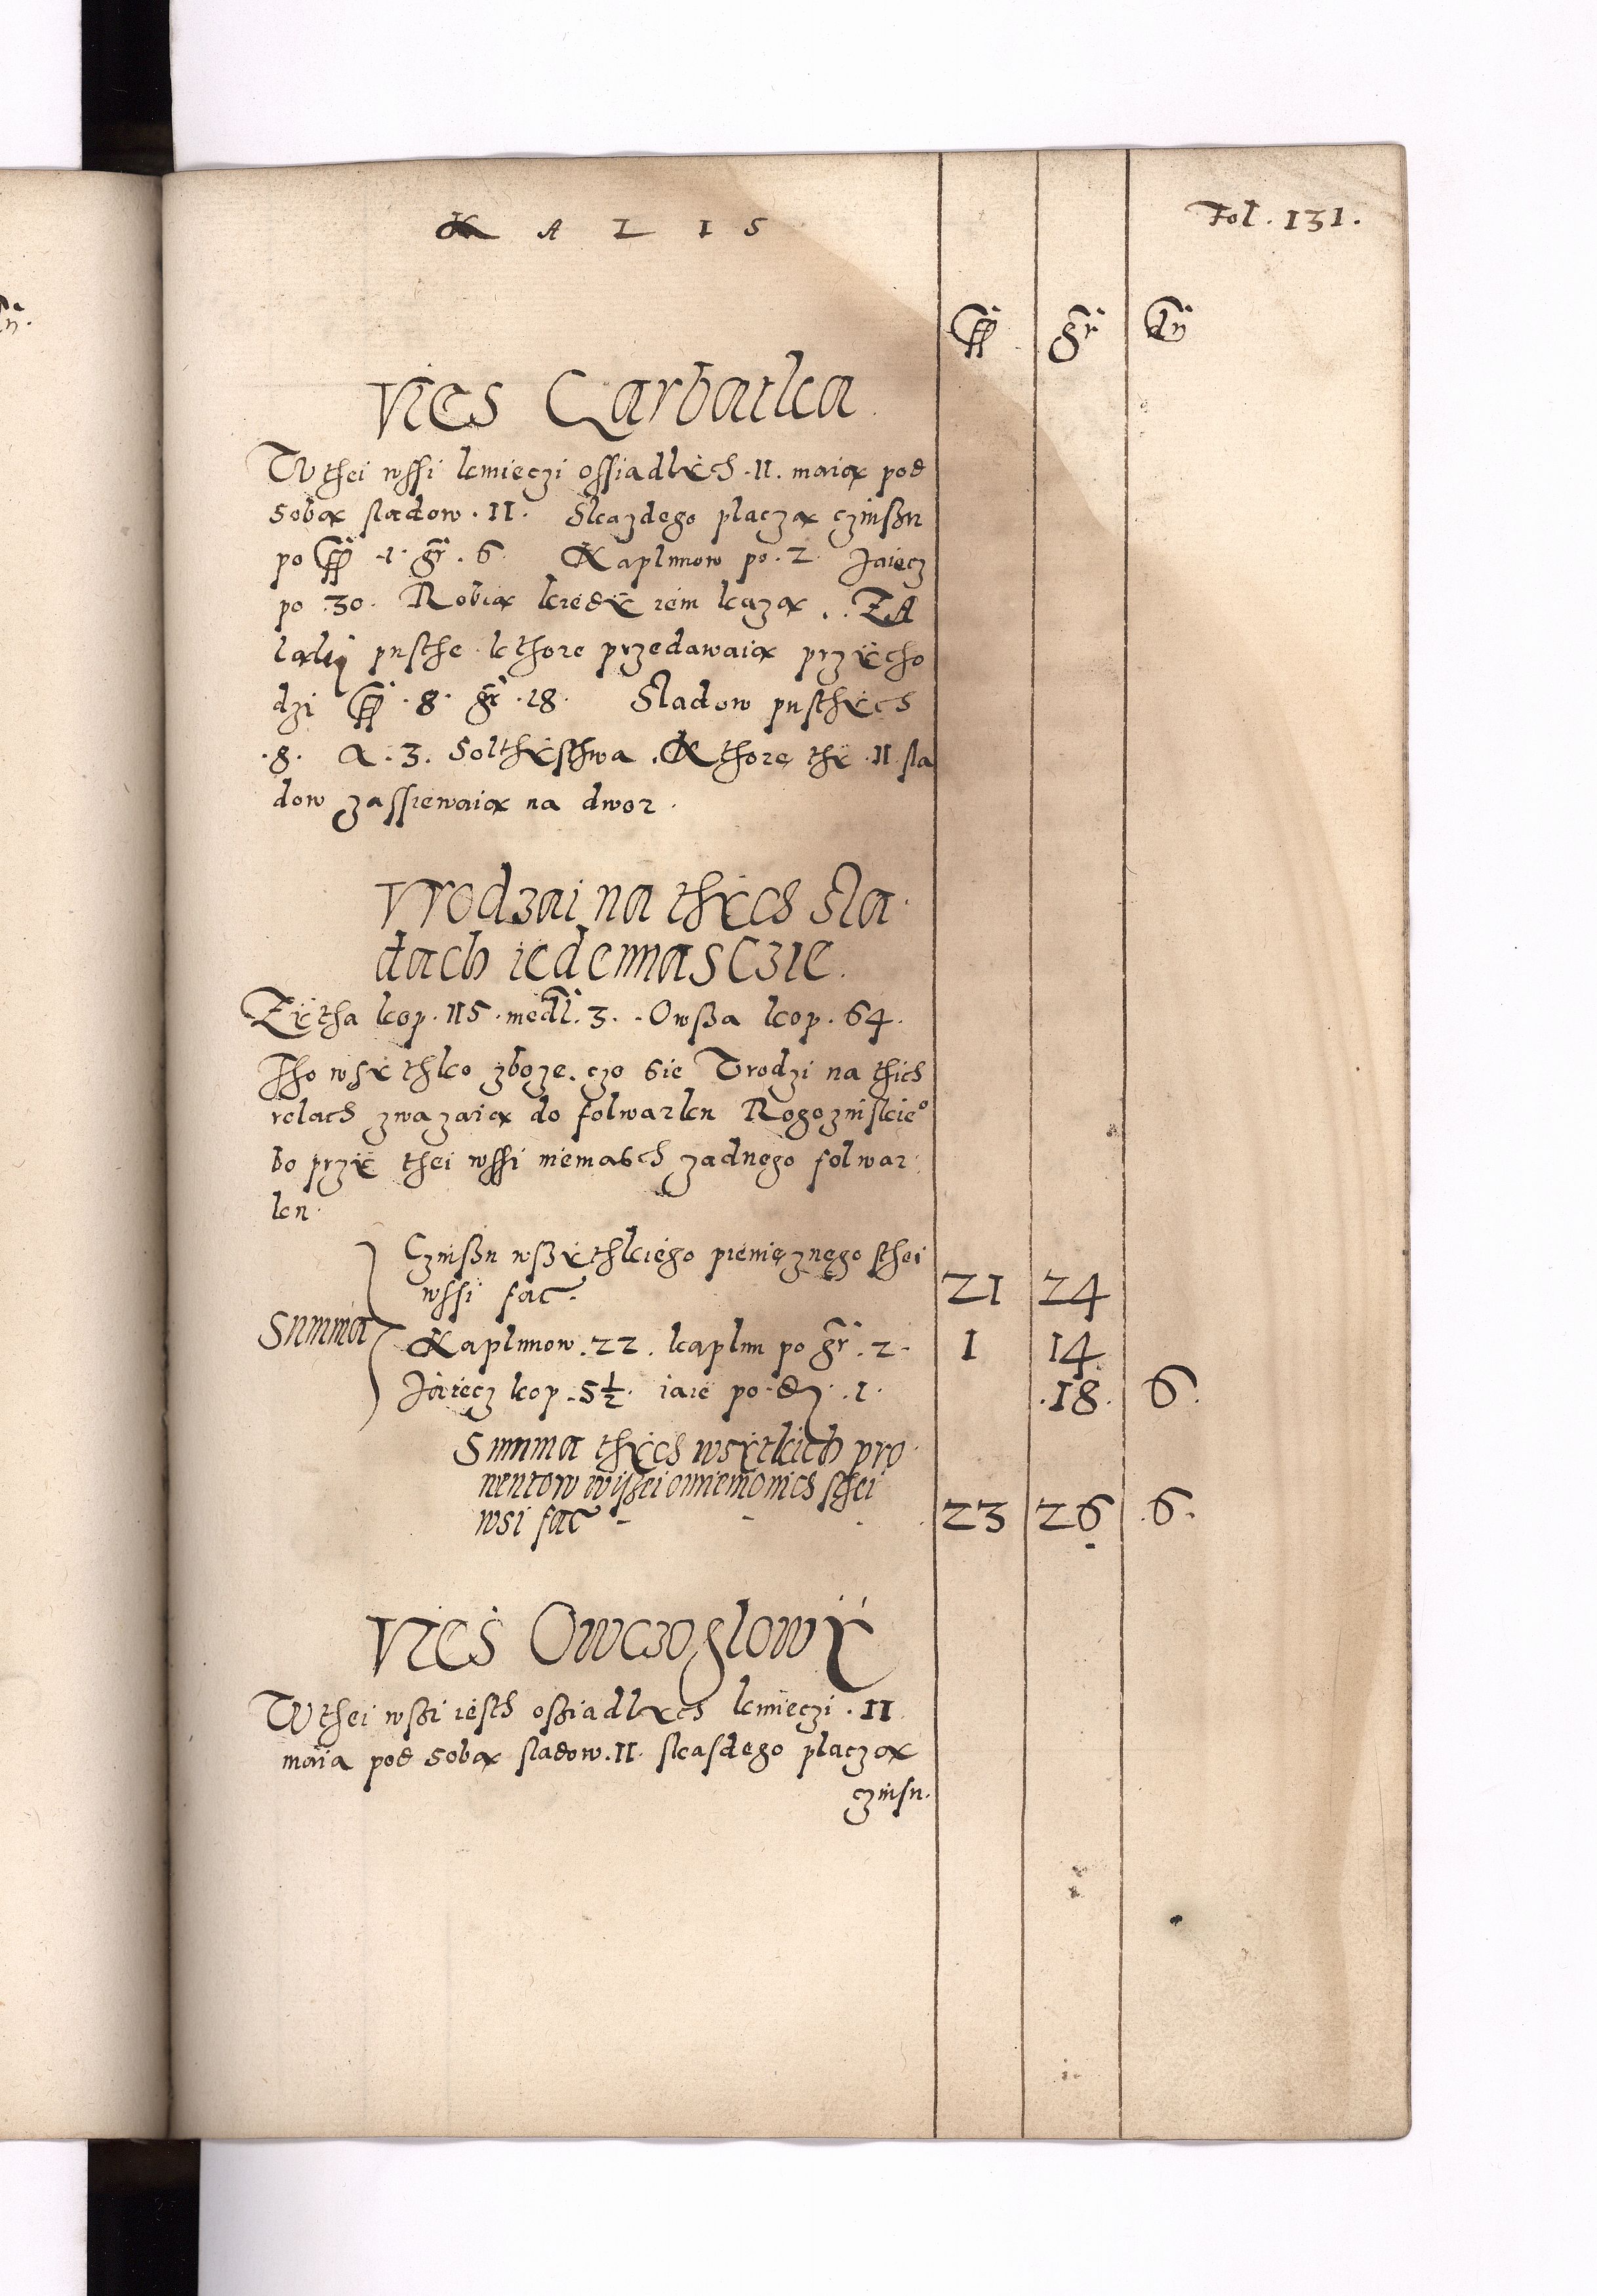 K A L I S
Fol. 131.
gr dn
Vies Garbatka
W thei wssi kmieczi ossiadlÿch .11. maią pod
sobą sladow .11. Skazdego placzą czinßu
po .1. gr .6. Kaplunow po .2. Jaiecz
po 30. Robią kiedÿ iem kazą. ZA
puste kthore przedawaią przÿcho
dzi .8. gr .18. Sladow pusthÿch
.8. A .3. Solthÿsthwa. Kthore thÿ .11. sla
dow zassiewaią na dwor.
Vrodzai na thÿch sla
dach iedennasczie.
Zÿtha kop. 115. medl. 3. Owßa kop. 64.
Tho wsÿthko zboze. czo sie Vrodzi na thich
rolach zwazaią do folwarku Rogoznskieo
bo przÿ thei wssi niemasch zadnego folwar
ku.
Czinßu wßÿthkiego pienięznego sthei
wssi fac. 21 24
Summa
Kaplunow .22. kaplun po gr .2. 1 14
Jaiecz kop .5½. iaie po .1. .18. 6.
Summa thÿch wsÿtkich pro
uentow wißei omiemonich sthei
wsi fac - - - 23 26 .6.
Vies Owczoglowÿ
W thei wßi iesth oßiadlÿch kmieczi .11
maia pod sobą sladow .11. skasdego placzą
czinsu.